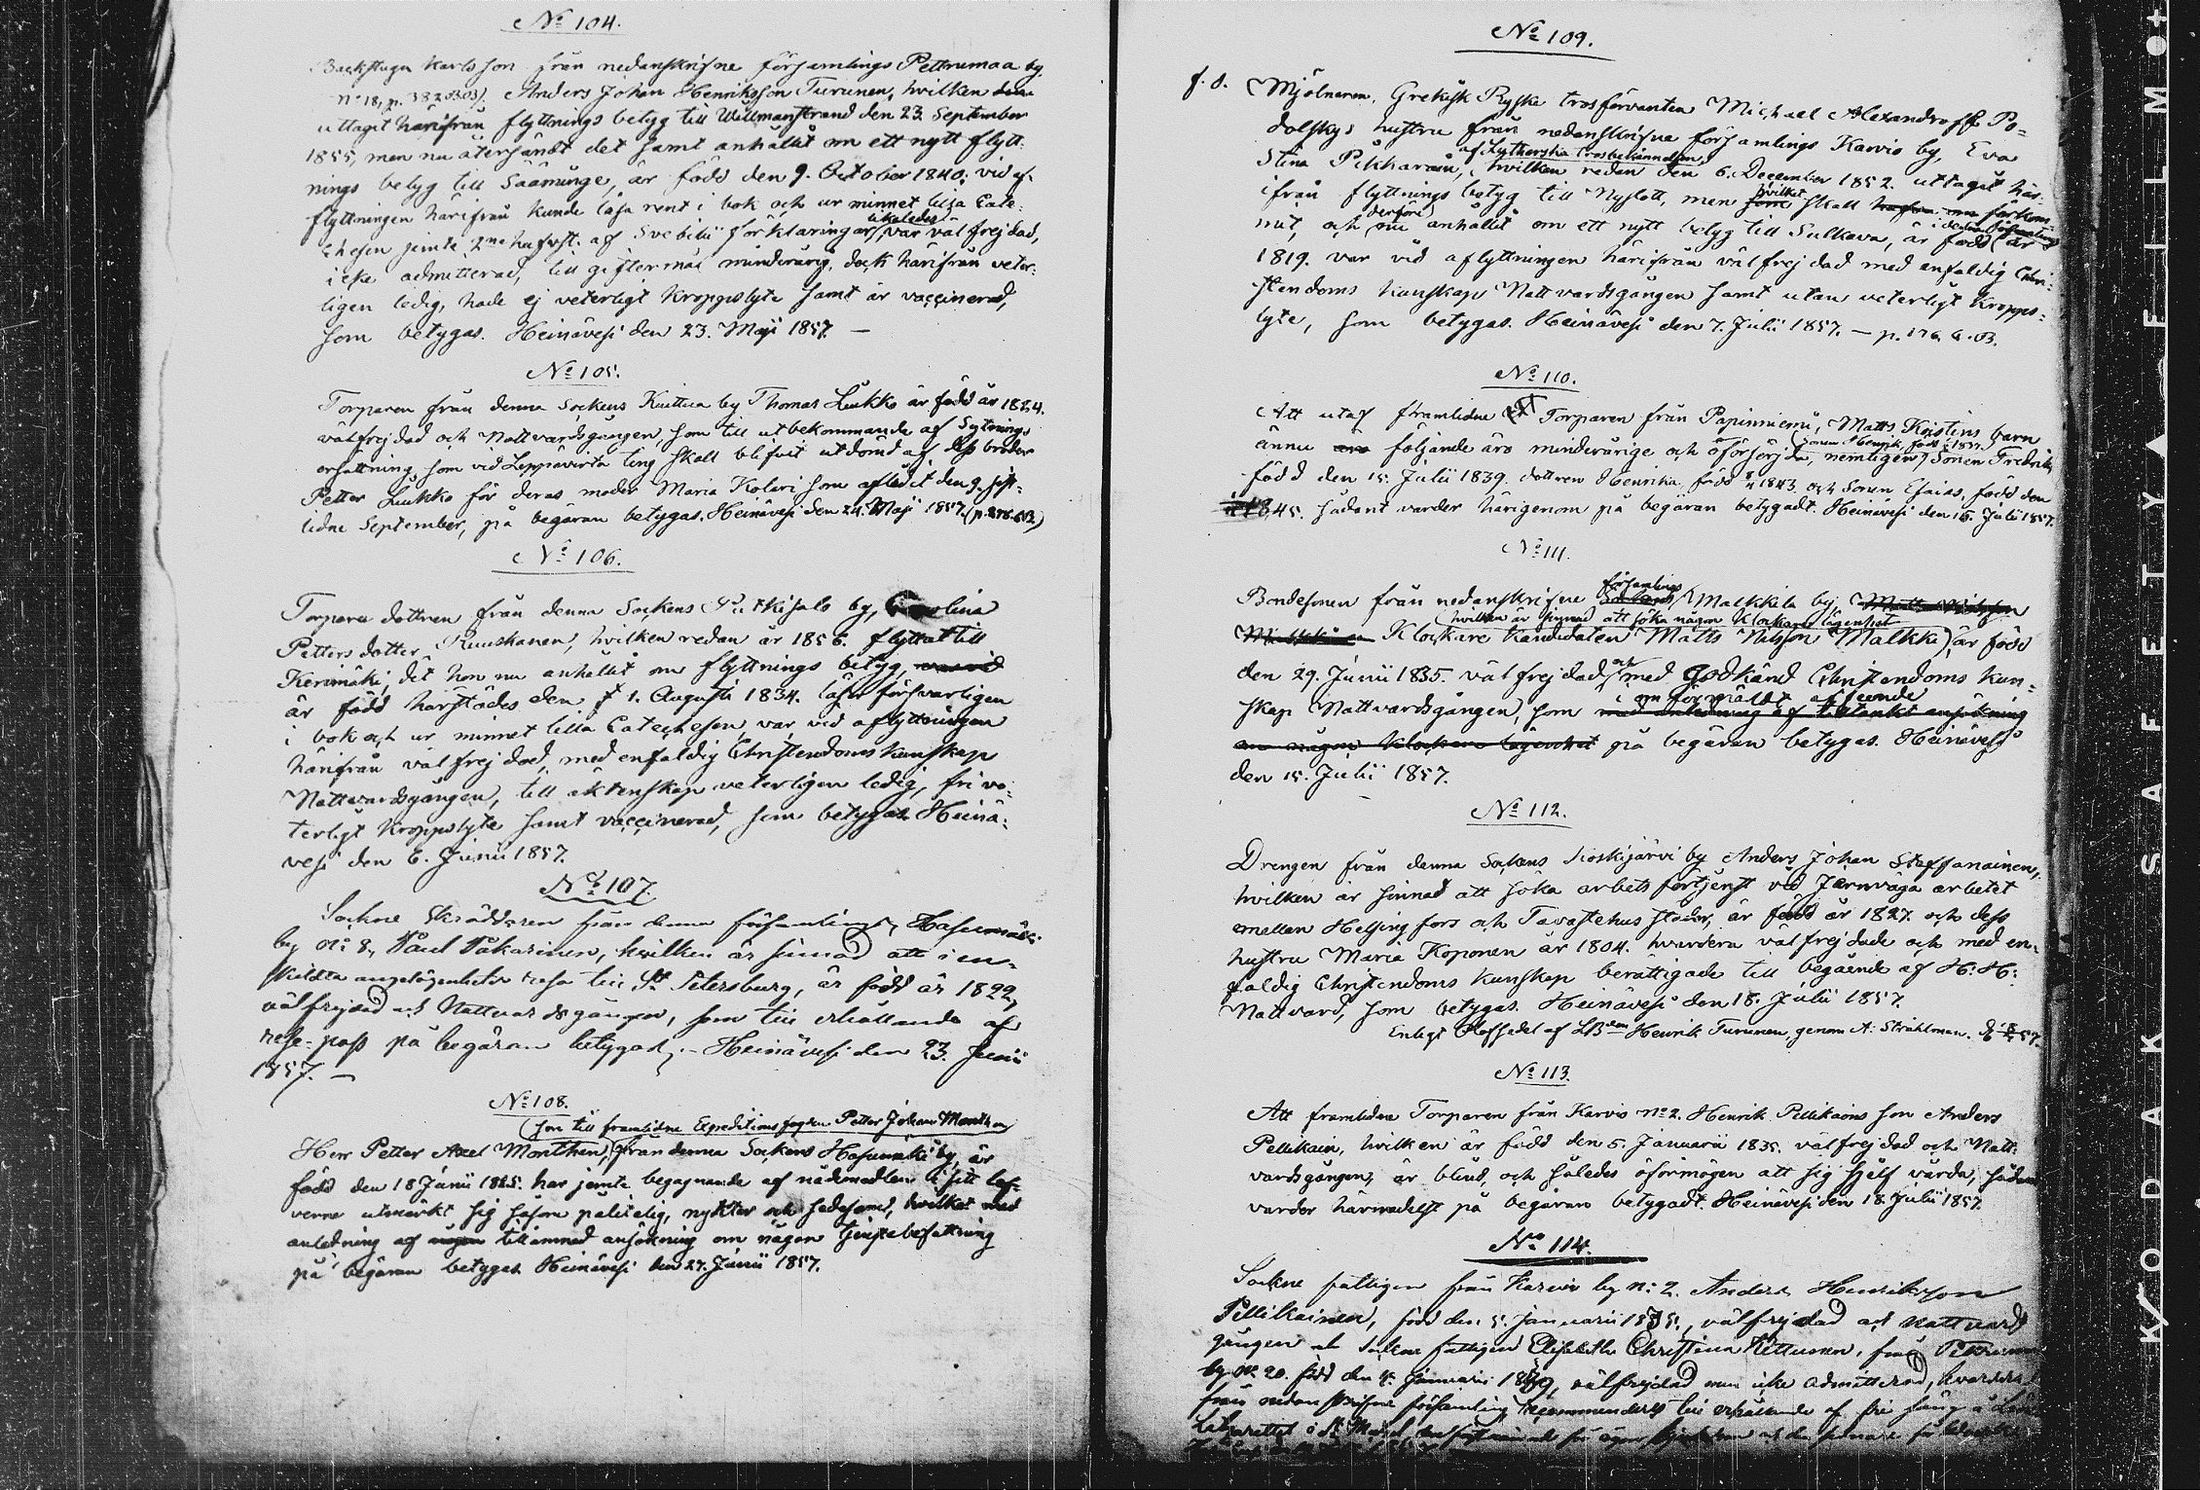 No 104.
Backstugu Karls son från nedanskrifne församlings Pettrumaa by
No 18, p. 382 Anders Johan Henriksson Turunen, hvilken
uttagit härifrån flyttnings betyg till Willmanstrand den 23. September
1855, men nu återsändt det samt anhållit om ett nytt flytt-
nings betyg till Säämınge, är född den 9. October 1840, vid af-
flyttningen härifrån kunde läsa rent i bok och ur minnet lilla Cate-
chesen jemte 2ne hufvst. af Svebilii förklaringar, likaledes var väl frejdad,
icke admitterad, till giftermål minderårig, dock härifrån veter-
ligen ledig, hade ej veterligt kroppslyte samt är vaccinerad,
som betygas. Heinävesi den 23. Maji 1857. —
No 105.
Torparen från denna Sockens Kuittua by Thomas Liukko är född år 1824.
välfrejdad och Nattvardsgången som till utbekommande af Sytnings
ersättning, som vid Leppävirta ting skall blifvit utdömd af dess broder
Petter Liukko för deras moder Maria Kolari som aflidit den 9. sist-
lidne September, på begäran betygas. Heinävesi den 24. Maji 1857.
No 106.
Torpare dottren från denna Sockens by, Carolina
Petters dotter Ruuskanen, hvilken redan år 1856. flyttat till
Kerimäki, det hon nu anhållit om flyttnings betyg,
är född härstädes den 1. Augusti 1834. läser försvarligen
i bok och ur minnet lilla Catechesen, var vid aflyttningen
härifrån välfrejdad, med enfaldig Christendoms kunskap
Nattvardsgången, till äktenskap veterligen ledig, fri ve-
terligt kroppslyte samt vaccinerad, som betygas Heinä-
vesi den 6. Junii 1857.
No 107.
Sockne Skräddaren från denna församlings Hasumäki
by No 8, Paul Pakarinen, hvilken är sinnad att i en-
skilta angelägenheter resa till St Petersburg, är född år 1822,
välfrejdad och Nattvardsgången, som till erhållande af
rese-pass på begäran betygas, – Heinävesi den 23. Junii
1857. —
No 108.
(son till framlidne Expeditions fogden Petter Johan Monthen
Herr Petter Axel Monthen, från denna Sockens Hasumäki by, är
född den 18 Junii 1825. har jemte begagnande af nådemedlen i sitt lef-
verne utmärkt sig såsom pålitelig, nykter och sedesam, hvilket med
anledning af någon tillämnad ansökning om någon tjenstebefattning
på begäran betygas. Heinävesi den 27. Junii 1857.
No 109.
f. d. Mjölnaren, Grekisk Ryska trosförvanten Michael Alexandroff Po-
dolskys hustru från nedanskrifne församlings Karvio by, Eva
af Lutherska trosbekännelsen,
Stina Pikkarain, hvilken redan den 6. December 1852. uttagit här-
ifrån flyttnings betyg till Nyslott, men som hvilket skall
mit, och derföre nu anhållit om ett nytt betyg till Sulkava, är född år
1819. var vid aflyttningen härifrån välfrejdad med enfaldig Chri-
stendoms kunskap Nattvardsgången samt utan veterligt kropps-
lyte, som betygas. Heinävesi den 7. Julii 1857. — p. 176.
No 110.
Att utaf framlidne Torparen från Papinniemi, Matts barn
ännu följande äro minderårige och oförsörjda, nemligen Sonen Henrik, född 1837. Sonen Fredrik,
född den 15. Julii 1839. dottren Henrika, född 1843. och Sonen Esaias, född den
1845. sådant varder härigenom på begäran betygadt. Heinävesi den 15. Julii 1857.
No 111.
Bondesonen från nedanskrifne församlings Malkkila by,
(hvilken är sinnad att söka någon klockare lägenhet
Klockare Kandidaten Matts Nilsson Malkki, är född
den 29. Junii 1835. välfrejdad, och med Godkänd Christendoms kun-
skap Nattvardsgången, som med anledning af tilltänkt ansökning
i om förmäldt afseende
om någon klockare lägenhet på begäran betygas. Heinävesi
den 15. Julii 1857.
No 112.
Drengen från denna Sockens by Anders Johan Staffanainen,
hvilken är sinnad att söka arbets förtjenst vid Jernvägs arbetet
emellan Helsingfors och Tavastehus städer, är född år 1827. och dess
hustru Maria Koponen år 1804. hvardera välfrejdade och med en-
faldig Christendoms kunskap berättigade till begående af H: H:
Nattvard, som betygas. Heinävesi den 18. Julii 1857.
Enligt Henrik Turunen, genom A: Stråhlman.
No 113.
Att framlidne Torparen från Karvio No 2. Henrik Pellikains son Anders
Pellikain, hvilken är född den 5. Januarii 1835. välfrejdad och Natt-
vardsgången, är blind, och således oförmögen att sig sjelf vårda, sådant
varder härmedelst på begäran betygadt. Heinävesi den 18. Julii 1857.
No 114.
Sockne fattigen från Karvio by No 2. Anders Henriksson
Pellikainen, född den 5. Januarii 1835., välfrejdad och nattvards
gången och Sockne fattigen Elisabeth Christina Kettunen, från
by No 20. född den 4. Januarii välfrejdad men icke admitterad, hvardera
från nedanskrifne församling recommenderas till erhållande af fri säng å
Lazarettet i St. Michel,